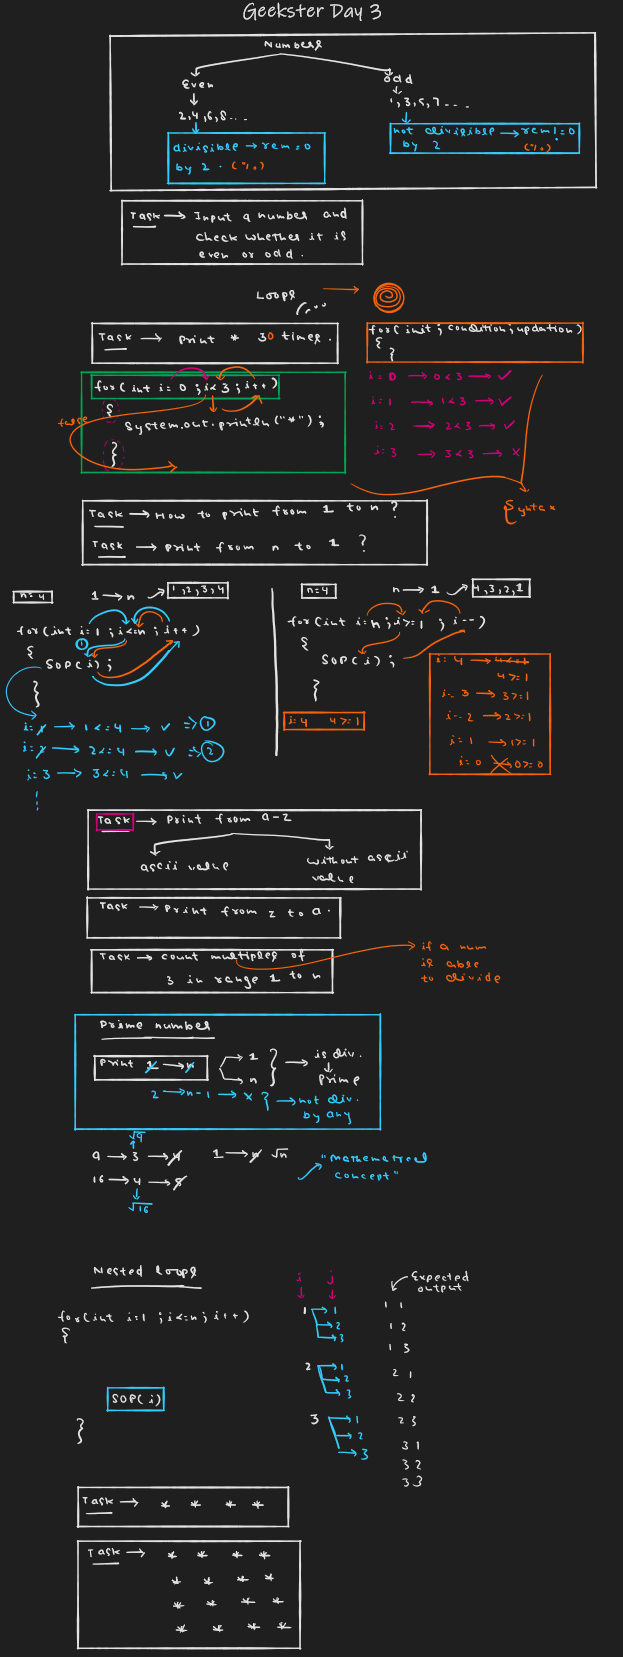 Geekster Day 3
Numbers
Even
odd
2,4,6,8...
1,3,5,7 - - -
divisible → rem = 0
by 2 . (%)
not divisible → rem! = 0
by 2 (%)
Task → Input a number and
check whether it is
even or odd.
Loops →
Task → print * 30 times.
for(init; condition; updation)
{
}
for(int i = 0 ; i < 3 ; i++)
{
System.out.println("*");
}
false
i = 0 → 0 < 3 → ✓
i = 1 → 1 < 3 → ✓
i = 2 → 2 < 3 → ✓
i = 3 → 3 < 3 → ×
Syntax
Task → How to print from 1 to n ?
Task → print from n to 1 ?
n = 4
1 → n
1,2,3,4
for(int i = 1 ; i <= n ; i++)
{
1
SOP(i);
}
i = 1 → 1 <= 4 → ✓ => 1
i = 2 → 2 <= 4 → ✓ => 2
i = 3 → 3 <= 4 → ✓
n = 4
n → 1
4,3,2,1
for(int i = n ; i >= 1 ; i--)
{
SOP(i);
}
i = 4 4 >= 1
i = 4 → 4 <= 1
4 >= 1
i = 3 → 3 >= 1
i = 2 → 2 >= 1
i = 1 → 1 >= 1
i = 0 → 0 >= 0
Task → Print from a-z
ascii value
without ascii
value
Task → Print from z to a.
Task → count multiples of
3 in range 1 to n
if a num
is able
to divide
Prime number
Print 1 → n
1
n
} → is div.
↓
Prime
2 → n-1 → × } → not div.
by any
√9
9 → 3 → 4
1 → n √n
16 → 4 → 8
√16
"mathematical
concept"
Nested loops
for(int i=1 ; i<=n; i++)
{
SOP(i)
}
i j
1 → 1
→ 2
→ 3
2 → 1
→ 2
→ 3
3 → 1
→ 2
→ 3
Expected
output
1 1
1 2
1 3
2 1
2 2
2 3
3 1
3 2
3 3
Task → * * * *
Task → * * * *
* * * *
* * * *
* * * *